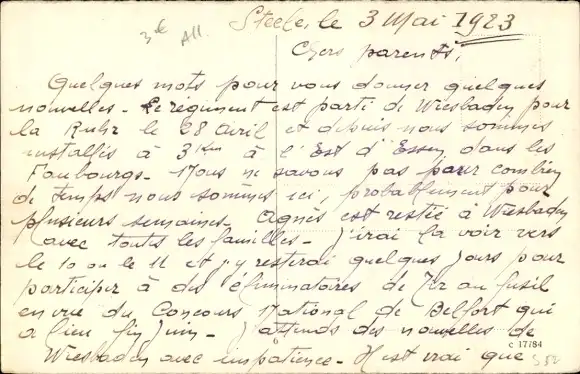 3e All.
Steele, le 3 Mai 1923
Chers parents,
Quelques mots pour vous donner quelques
nouvelles - Le régiment est parti de Wiesbaden pour
la Ruhr le 28 avril et depuis nous sommes
installés à 3 Km à l'Est d'Essen dans les
Faubourgs - Nous ne savons pas pour combien
de temps nous sommes ici, probablement pour
plusieurs semaines. Agnès est restée à Wiesbaden
avec toutes les familles - J'irai la voir vers
le 10 ou le 11 et j'y resterai quelques jours pour
participer à des éliminatoires de Tir au fusil
en vue du Concours National de Belfort qui
a lieu fin Juin - J'attends des nouvelles de
Wiesbaden avec impatience - Il est vrai que
c 17784